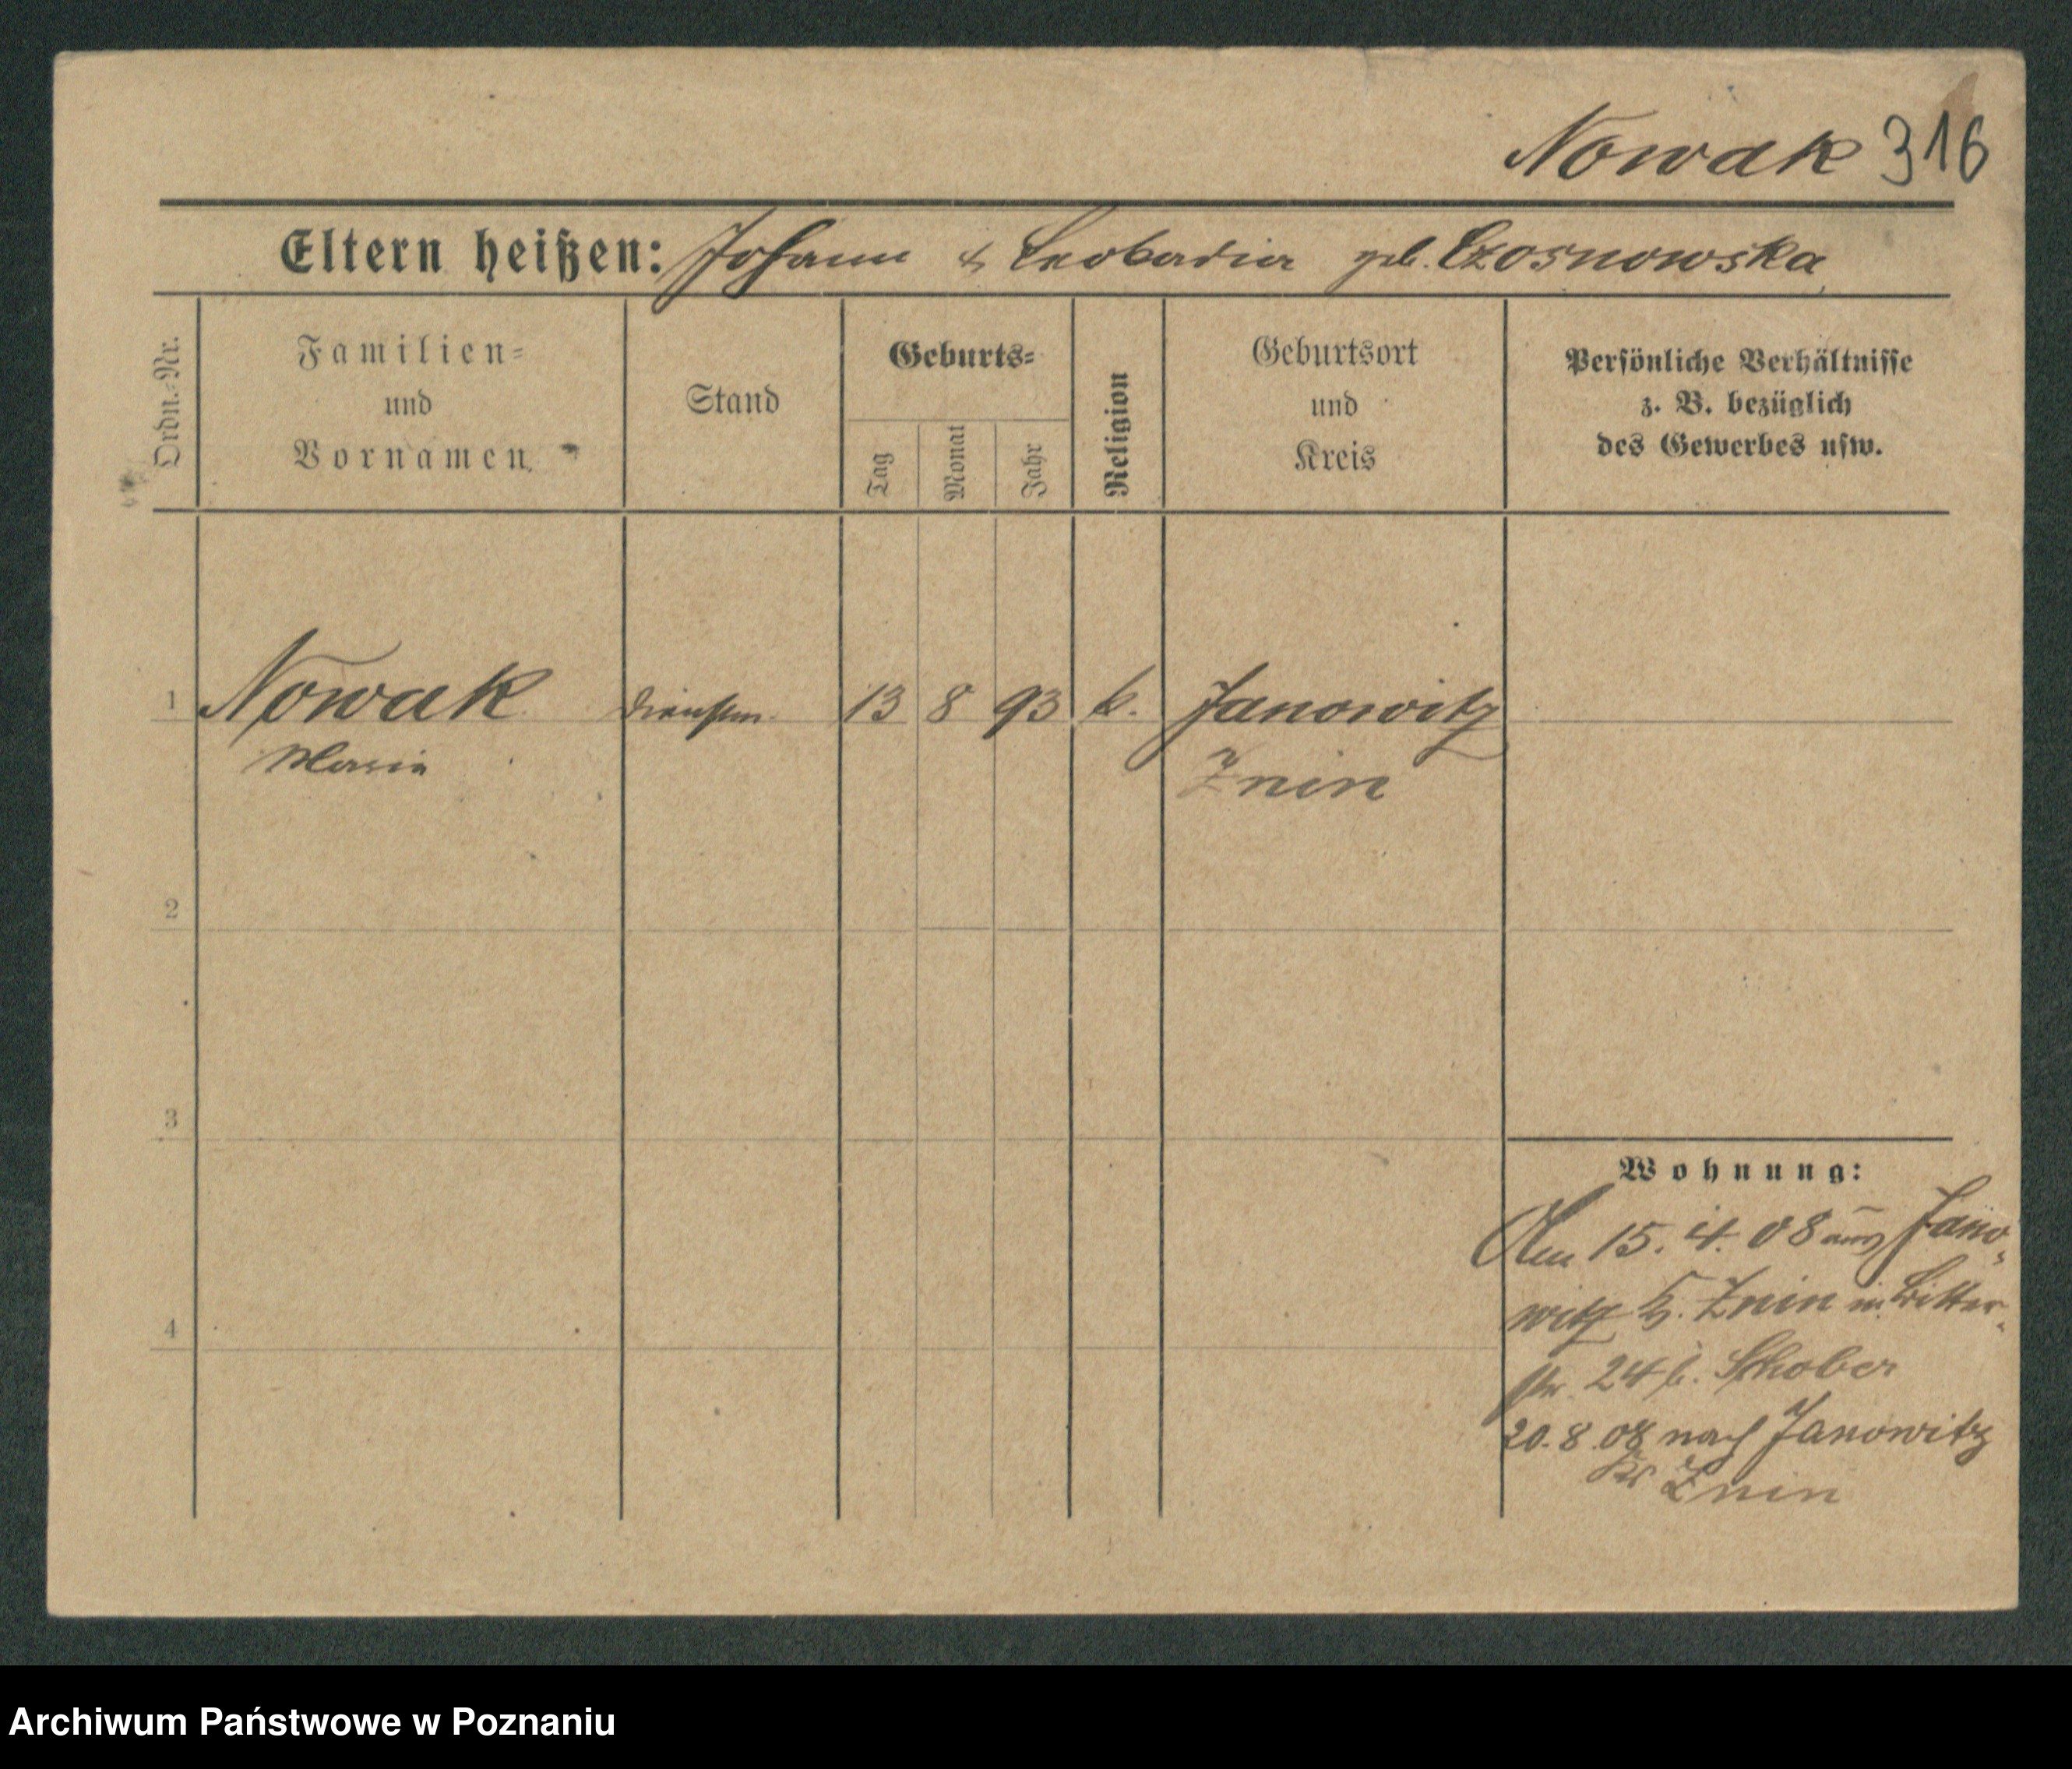 Nowak 316
Eltern heißen: Johann & Leokadia geb. Czosnowska
Ordn.-Nr.
Familien-
und
Vornamen
Stand
Geburts-
Tag
Monat
Jahr
Religion
Geburtsort
und
Kreis
Persönliche Verhältnisse
z. B. bezüglich
des Gewerbes usw.
1 Nowak 13 8 93 k. Janowitz
Maria Znin
2
3
4
Wohnung:
Am 15. 4. 08 aus Jano-
witz K. Znin in Ritter-
str. 24 b. Schober
20. 8. 08 nach Janowitz
Kr Znin
Archiwum Państwowe w Poznaniu